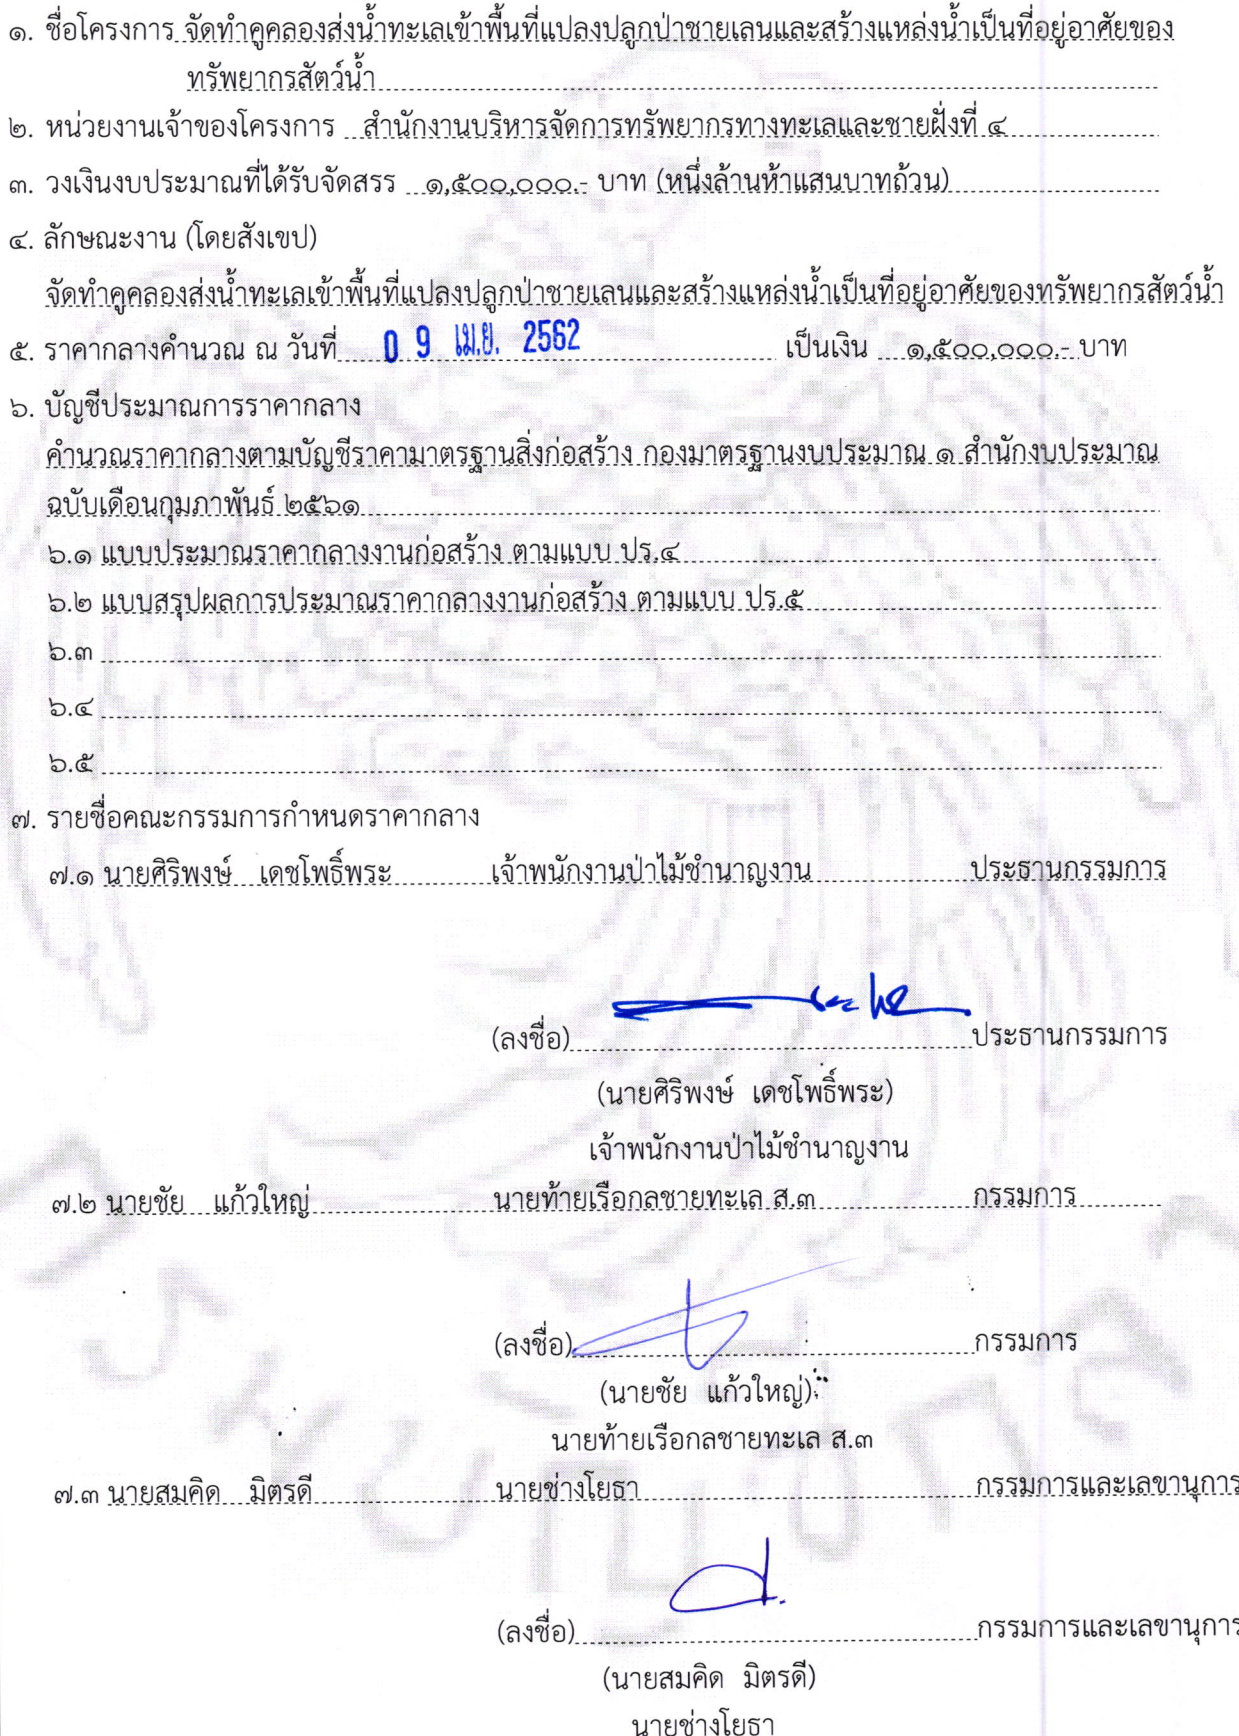 ๑. ชื่อโครงการ จัดทำคูคลองส่งน้ำทะเลเข้าพื้นที่แปลงปลูกป่าชายเลนและสร้างแหล่งน้ำเป็นที่อยู่อาศัยของ
ทรัพยากรสัตว์น้ำ
๒. หน่วยงานเจ้าของโครงการ สำนักงานบริหารจัดการทรัพยากรทางทะเลและชายฝั่งที่ ๔
๓. วงเงินงบประมาณที่ได้รับจัดสรร ๑,๕๐๐,๐๐๐.- บาท (หนึ่งล้านห้าแสนบาทถ้วน)
๔. ลักษณะงาน (โดยสังเขป)
จัดทำคูคลองส่งน้ำทะเลเข้าพื้นที่แปลงปลูกป่าชายเลนและสร้างแหล่งน้ำเป็นที่อยู่อาศัยของทรัพยากรสัตว์น้ำ
๕. ราคากลางคำนวณ ณ วันที่ 0 9 เม.ย. 2562 เป็นเงิน ๑,๕๐๐,๐๐๐.- บาท
๖. บัญชีประมาณการราคากลาง
คำนวณราคากลางตามบัญชีราคามาตรฐานสิ่งก่อสร้าง กองมาตรฐานงบประมาณ ๑ สำนักงบประมาณ
ฉบับเดือนกุมภาพันธ์ ๒๕๖๑
๖.๑ แบบประมาณราคากลางงานก่อสร้าง ตามแบบ ปร.๔
๖.๒ แบบสรุปผลการประมาณราคากลางงานก่อสร้าง ตามแบบ ปร.๕
๖.๓
๖.๔
๖.๕
๗. รายชื่อคณะกรรมการกำหนดราคากลาง
๗.๑ นายศิริพงษ์ เดชโพธิ์พระ เจ้าพนักงานป่าไม้ชำนาญงาน ประธานกรรมการ
(ลงชื่อ) ประธานกรรมการ
(นายศิริพงษ์ เดชโพธิ์พระ)
เจ้าพนักงานป่าไม้ชำนาญงาน
๗.๒ นายชัย แก้วใหญ่ นายท้ายเรือกลชายทะเล ส.๓ กรรมการ
(ลงชื่อ) กรรมการ
(นายชัย แก้วใหญ่)
นายท้ายเรือกลชายทะเล ส.๓
๗.๓ นายสมคิด มิตรดี นายช่างโยธา กรรมการและเลขานุการ
(ลงชื่อ) กรรมการและเลขานุการ
(นายสมคิด มิตรดี)
นายช่างโยธา